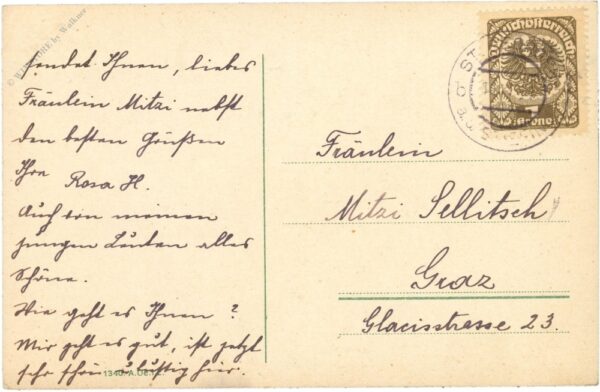 sendet Ihnen, liebes
Fräulein Mitzi nebst
den besten Grüßen
Ihre Rosa H.
Auch von meinen
jungen Leuten alles
Schöne.
Wie geht es Ihnen?
Mir geht es gut, ist jetzt
sehr schön u. lustig hier.
Deutschösterreich
1 Krone
ST.
Fräulein
Mitzi Sellitsch
Graz
Glacisstrasse 23.
by Walkner